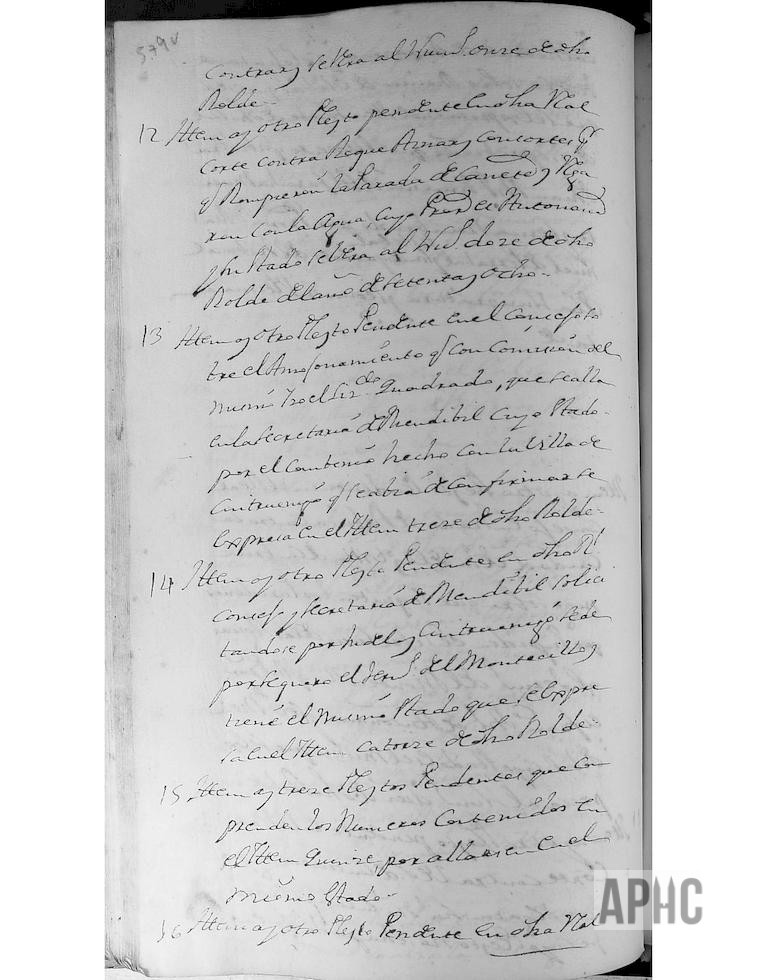 579v
Contrario se vera al Num.º onze de dho
Rolde.
12 Ittem ay otro Pleyto pendiente en dha Real
Corte contra Roque Arnax y consortes
q Rompieron la Parada de Cañete y
con la Agua, cuyo
y su stado se vera al Num.º doze de dho
Rolde del año de setenta y ocho.
13 Ittem ay otro Pleyto Pendiente en el Consejo so
bre el Amojonamiento q con Comission del
mismo el Liz.do Quadrado, que se alla
en la secretaria de Mendibil cuyo stado
por el combenio hecho con la Villa de
Cintruenigo q se abia de confirmar se
expresa en el Ittem treze de dho Rolde.
14 Ittem ay otro Pleyto Pendiente en dho Rl
Consejo y secretaria de Mendibil solici
tandose por Tudela y Cintruenigo se de
por seguero el del Montecillo y
tiene el mismo stado que se expre
sa en el Ittem catorze de dho Rolde.
15 Ittem ay treze Pleytos Pendientes que com
prenden los Numeros contenidos en
el Ittem Quinze, por allarse en el
mismo estado.
16 Ittem ay otro Pleyto Pendiente en dha Real
APHC